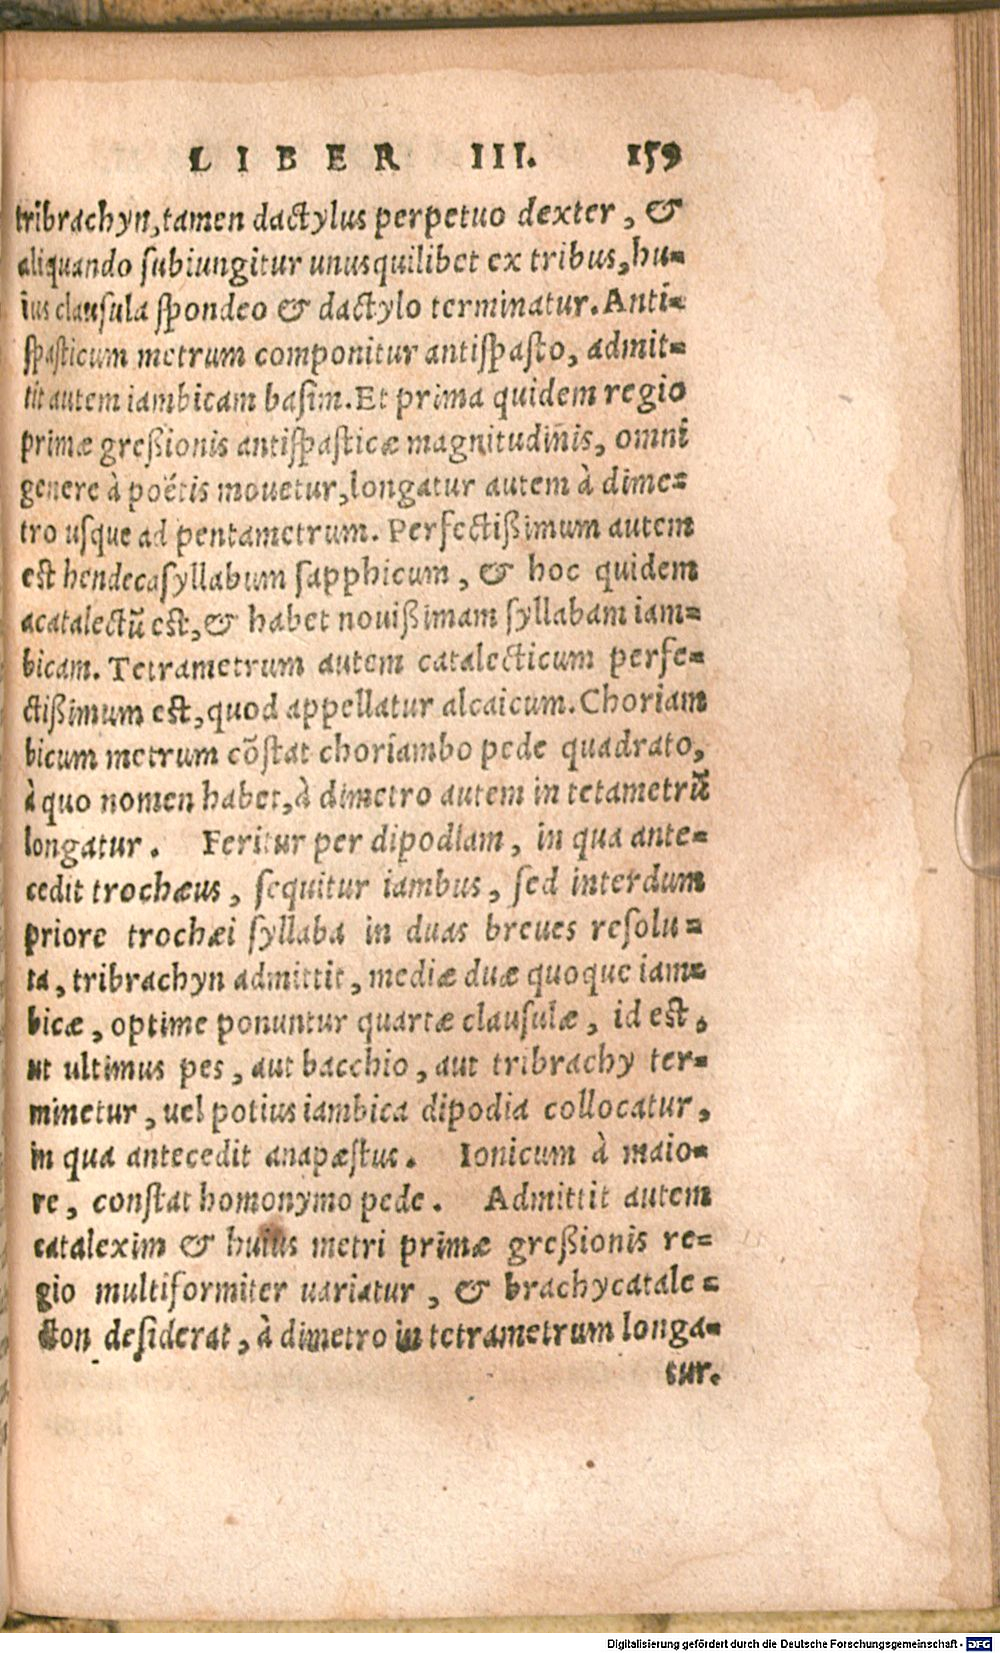 LIBER III. 159
tribrachyn, tamen dactylus perpetuo dexter, &
aliquando subiungitur unusquilibet ex tribus, hu=
ius clausula spondeo & dactylo terminatur. Anti=
spasticum metrum componitur antispasto, admit=
tit autem iambicam basim. Et prima quidem regio
primæ greßionis antispasticæ magnitudinis, omni
genere à poëtis mouetur, longatur autem à dime=
tro usque ad pentametrum. Perfectißimum autem
est hendecasyllabum sapphicum, & hoc quidem
acatalectũ est, & habet nouißimam syllabam iam=
bicam. Tetrametrum autem catalecticum perfe=
ctißimum est, quod appellatur alcaicum. Choriam
bicum metrum cõstat choriambo pede quadrato,
à quo nomen habet, à dimetro autem in tetametrũ
longatur. Feritur per dipodiam, in qua ante=
cedit trochæus, sequitur iambus, sed interdum
priore trochæi syllaba in duas breues resolu=
ta, tribrachyn admittit, mediæ duæ quoque iam=
bicæ, optime ponuntur quartæ clausulæ, id est,
ut ultimus pes, aut bacchio, aut tribrachy ter=
minetur, uel potius iambica dipodia collocatur,
in qua antecedit anapæstus. Ionicum à maio=
re, constat homonymo pede. Admittit autem
catalexim & huius metri primæ greßionis re=
gio multiformiter uariatur, & brachycatale=
cton desiderat, à dimetro in tetrametrum longa=
tur.
Digitalisierung gefördert durch die Deutsche Forschungsgemeinschaft - DFG